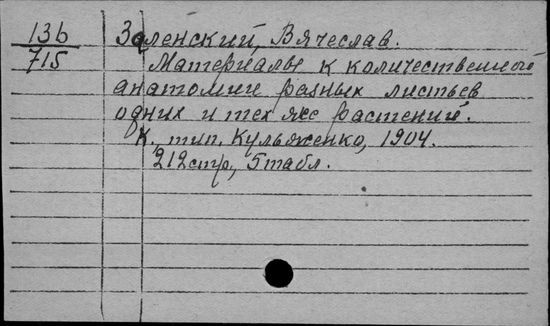 136 Заленский, Вячеслав.
715 Материалы к количественной
анатомии разных листьев
одних и тех же растений.
К. тип. Кульженко, 1904.
212стр., 5табл.